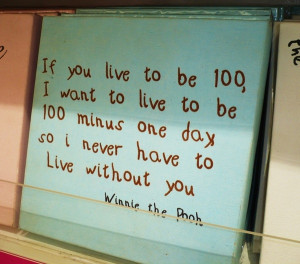 If you live to be 100,
I want to live to be
100 minus one day
so i never have to
Live without you
Winnie the Pooh